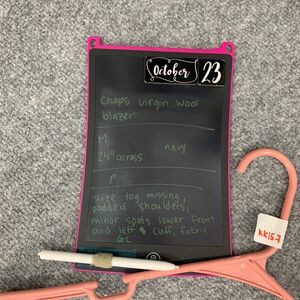 October 23
Chaps virgin wool
blazer
M
navy
24" across
P
size tag missing,
padded shoulders,
minor spots lower front
and left cuff, fabric
KK157